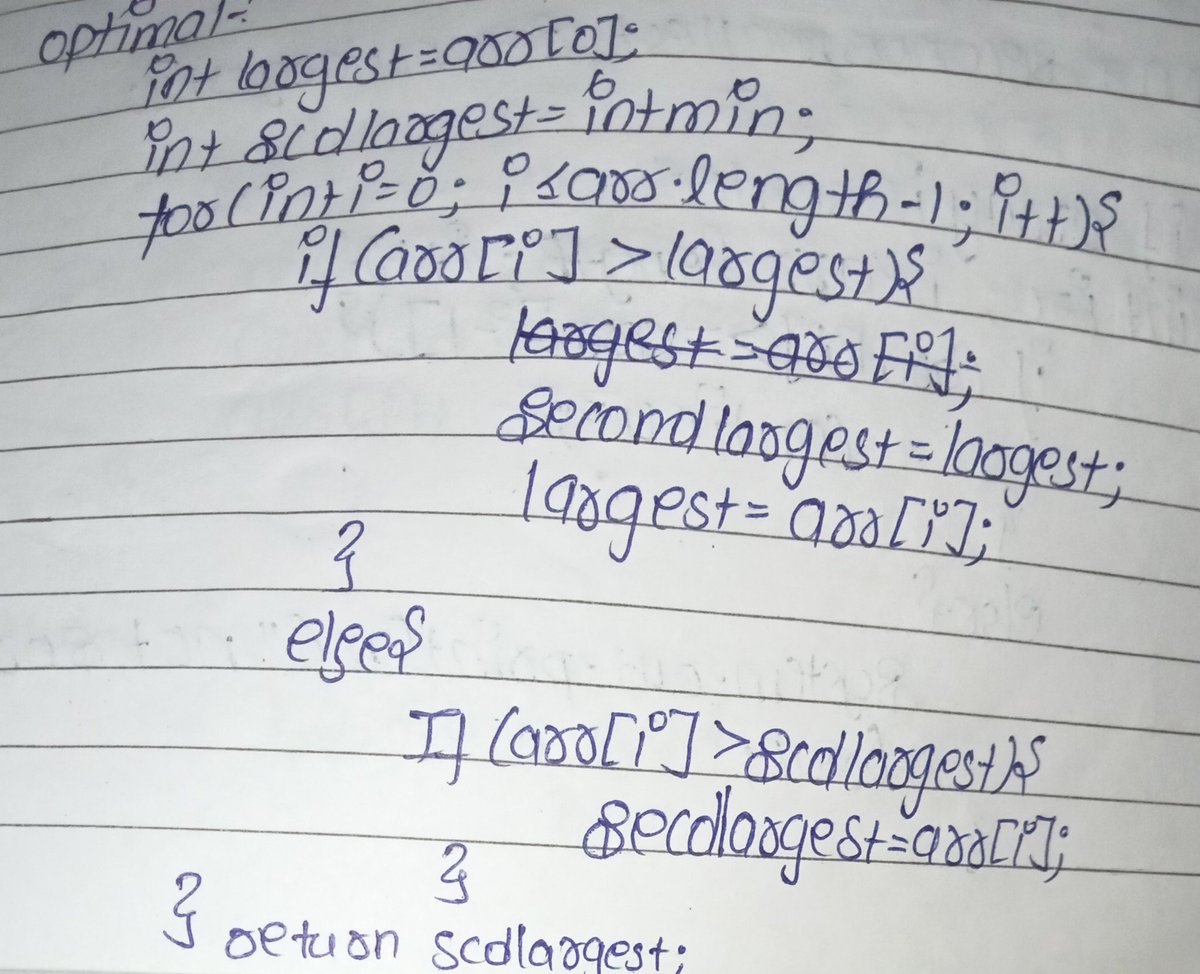 optimal-:
int largest=arr[0];
int scdlargest=intmin;
for(int i=0; i≤arr.length-1; i++){
if(arr[i]>largest){
largest=arr[i];
secondlargest=largest;
largest=arr[i];
}
else{
If(arr[i]>scdlargest){
secdlargest=arr[i];
}
} return scdlargest;